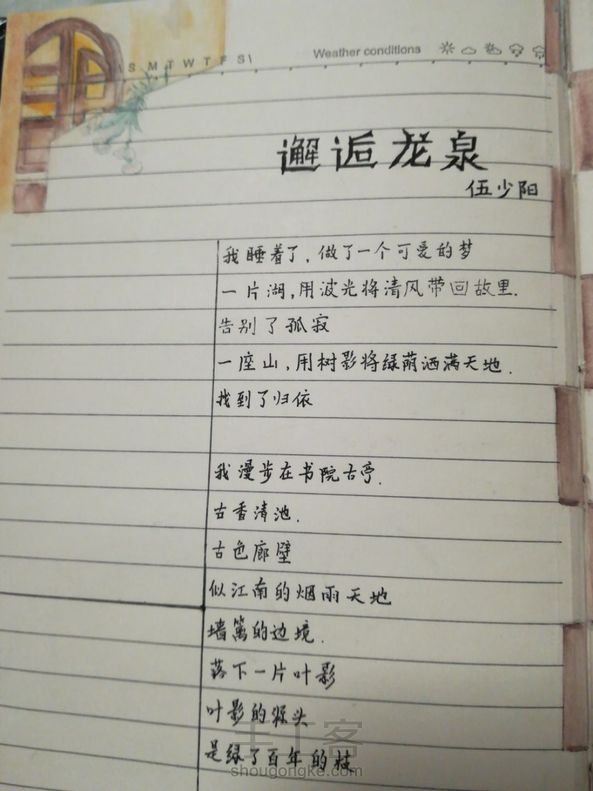 S M T W T F S
Weather conditions
邂逅龙泉
伍少阳
我睡着了,做了一个可爱的梦
一片湖,用波光将清风带回故里.
告别了孤寂
一座山,用树影将绿荫洒满天地.
找到了归依
我漫步在书院古亭.
古香清池.
古色廊壁
似江南的烟雨天地
墙篱的边境.
落下一片叶影
叶影的源头
是绿了百年的枝
手工客
shougongke.com